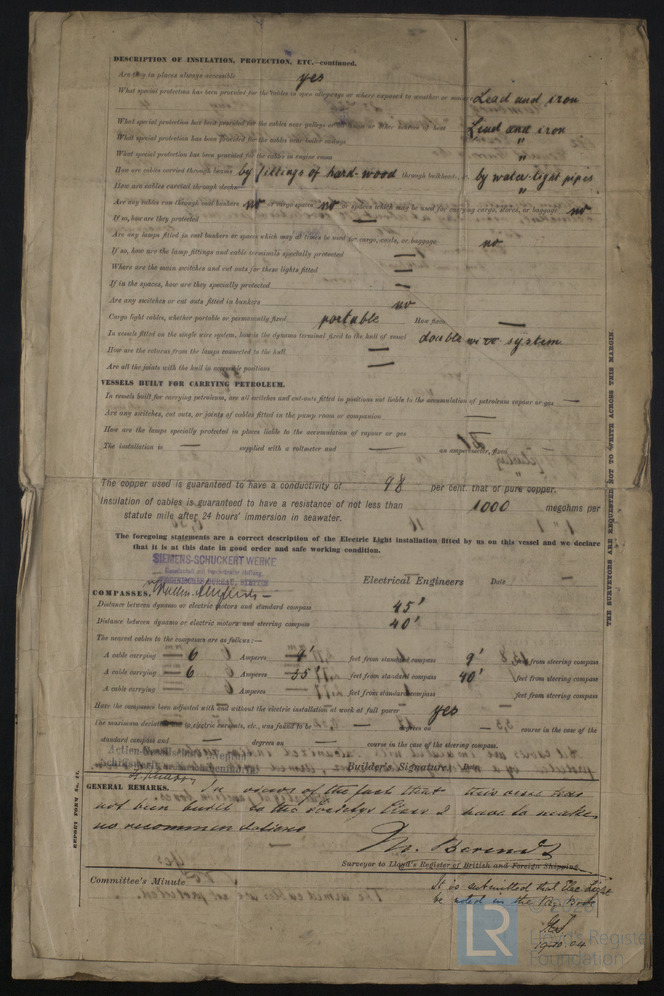 DESCRIPTION OF INSULATION, PROTECTION, ETC.—continued.
Are they in places always accessible yes
What special protection has been provided for the cables in open alleyways or where exposed to weather or moisture Lead and iron
What special protection has been provided for the cables near galleys or oil lamps or other sources of heat Lead and iron
What special protection has been provided for the cables near boiler casings "
What special protection has been provided for the cables in engine room "
How are cables carried through beams by fillings of hard-wood through bulkheads, &c. by water-tight pipes
How are cables carried through decks "
Are any cables run through coal bunkers no or cargo spaces no or spaces which may be used for carrying cargo, stores, or baggage no
If so, how are they protected —
Are any lamps fitted in coal bunkers or spaces which may at times be used for cargo, coals, or baggage no
If so, how are the lamp fittings and cable terminals specially protected —
Where are the main switches and cut outs for these lights fitted —
If in the spaces, how are they specially protected —
Are any switches or cut outs fitted in bunkers no
Cargo light cables, whether portable or permanently fixed portable How fixed —
In vessels fitted on the single wire system, how is the dynamo terminal fixed to the hull of vessel double wire system
How are the returns from the lamps connected to the hull —
Are all the joints with the hull in accessible positions —
VESSELS BUILT FOR CARRYING PETROLEUM.
In vessels built for carrying petroleum, are all switches and cut-outs fitted in positions not liable to the accumulation of petroleum vapour or gas —
Are any switches, cut outs, or joints of cables fitted in the pump room or companion —
How are the lamps specially protected in places liable to the accumulation of vapour or gas —
The installation is — supplied with a voltmeter and — an amperemeter, fixed
The copper used is guaranteed to have a conductivity of 98 per cent. that of pure copper.
Insulation of cables is guaranteed to have a resistance of not less than 1000 megohms per
statute mile after 24 hours' immersion in seawater.
The foregoing statements are a correct description of the Electric Light installation fitted by us on this vessel and we declare
that it is at this date in good order and safe working condition.
SIEMENS-SCHUCKERT WERKE
Gesellschaft mit beschränkter Haftung
BUREAU, STETTIN
Electrical Engineers Date —
COMPASSES.
Distance between dynamo or electric motors and standard compass 45'
Distance between dynamo or electric motors and steering compass 40'
The nearest cables to the compasses are as follows:—
A cable carrying 6 Amperes 4' feet from standard compass 9' feet from steering compass
A cable carrying 6 Amperes 35' feet from standard compass 40' feet from steering compass
A cable carrying — Amperes — feet from standard compass feet from steering compass
Have the compasses been adjusted with and without the electric installation at work at full power yes
The maximum deviation due to electric currents, etc., was found to be — degrees on — course in the case of the
standard compass and — degrees on — course in the case of the steering compass.
Builder's Signature. Date
GENERAL REMARKS. In view of the fact that this vessel has
not been built to the Societys Class I have to make
no recommendations
Surveyor to Lloyd's Register of British and Foreign Shipping
Committee's Minute
It is submitted that Elec Light
be noted in the Reg. Book
19.10.04
REPORT FORM No. 17.
THE SURVEYORS ARE REQUESTED NOT TO WRITE ACROSS THIS MARGIN.
LR
Lloyd's Register
Foundation